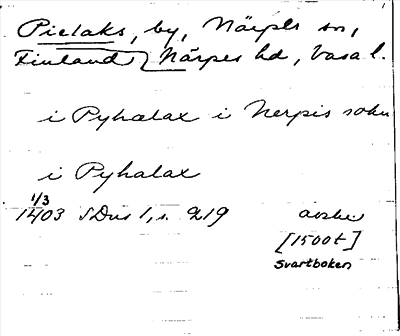 Pielaks, by, Närpes sn,
Finland, Närpes hd, Vasa l.
i Pyhalax i Nerpis sokn
i Pyhalax
1/3
1403 SDns 1, s. 219 avskr
[1500t]
Svartboken